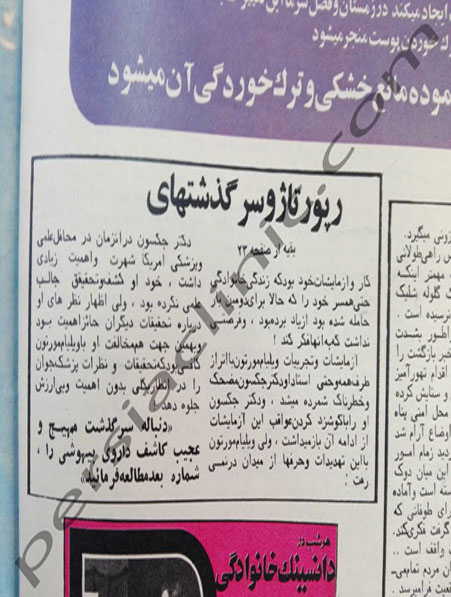 ایجاد میکند در زمستان و فصل سرما این
خوردن پوست منجر میشود
موده مانع خشکی و ترك خوردگی آن میشود
رپورتاژ و سرگذشتهای
بقیه از صفحه ۲۳
کار و ازمایشات خود بود که زندگی خانوادگی
حتی همسر خود را که حالا برای دومین بار
حامله شده بود ازیاد برده بود ، و فرصتی
نداشت که به آنها فکر کند !
ازمایشات و تجربیات ویلیام مورتون با اتراز
طرف همه و حتی استاد او دکتر جکسون مضحك
و خطرناك شمرده میشد ، و دکتر جکسون
او را با گوشزد کردن عواقب این آزمایشات
از ادامه آن باز میداشت ، ولی ویلیام مورتون
با این تهدیدات و حرفها از میدان در نمی
رفت !
دکتر جکسون در انزمان در محافل علمی
وپزشکی امریکا شهرت واهمیت زیادی
داشت ، خود او کشف و تحقیق جالب
علمی نکرده بود ، ولی اظهار نظر های او
درباره تحقیقات دیگران حائز اهمیت بود
وبهمین جهت هم مخالفت او با ویلیام مورتون
کافی بود که تحقیقات و نظرات پزشك جوان
را در انظار یکی بدون اهمیت و بی ارزش
جلوه دهد
«دنباله سرگذشت مهیج و
عجیب کاشف داروی بیهوشی را ،
شماره بعد مطالعه فرمائید»
زونی میگیرد.
راهی طولانی
مهمتر اینکه
ك گلوله شلیك
نرسیده است .
اطور بشدت
خبر بازگشت را
اقدام تهور آمیز
و ستایش کرده
محل امنی پناه
اوضاع آرام شد
ردید زمام امور
این میان دوك
سته است و آماده
رای طوفانی که
گرفت فکری کند.
واقف است ..
ان مردم تمام می‌
قعیت فرامیرسد .
هرشب در
دانسینك خانوادگی
persiaclinic.com